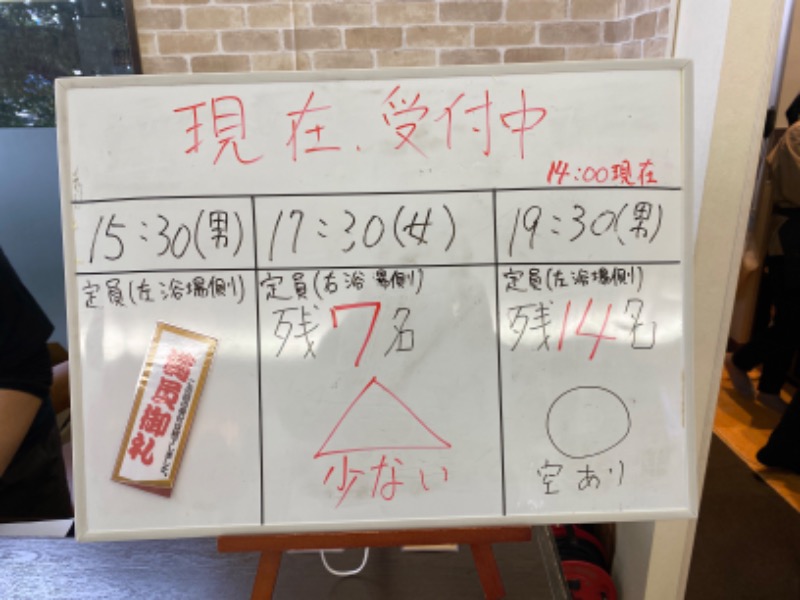 現在、受付中
14:00現在
15:30(男)
17:30(女)
19:30(男)
定員(左浴場側)
満員御礼
定員(右浴場側)
残7名
少ない
定員(左浴場側)
残14名
空あり